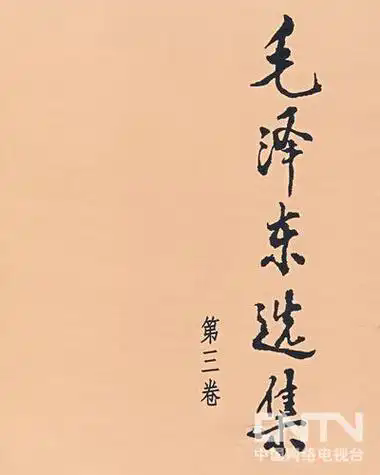 毛泽东选集
第三卷
CNTV
中国网络电视台